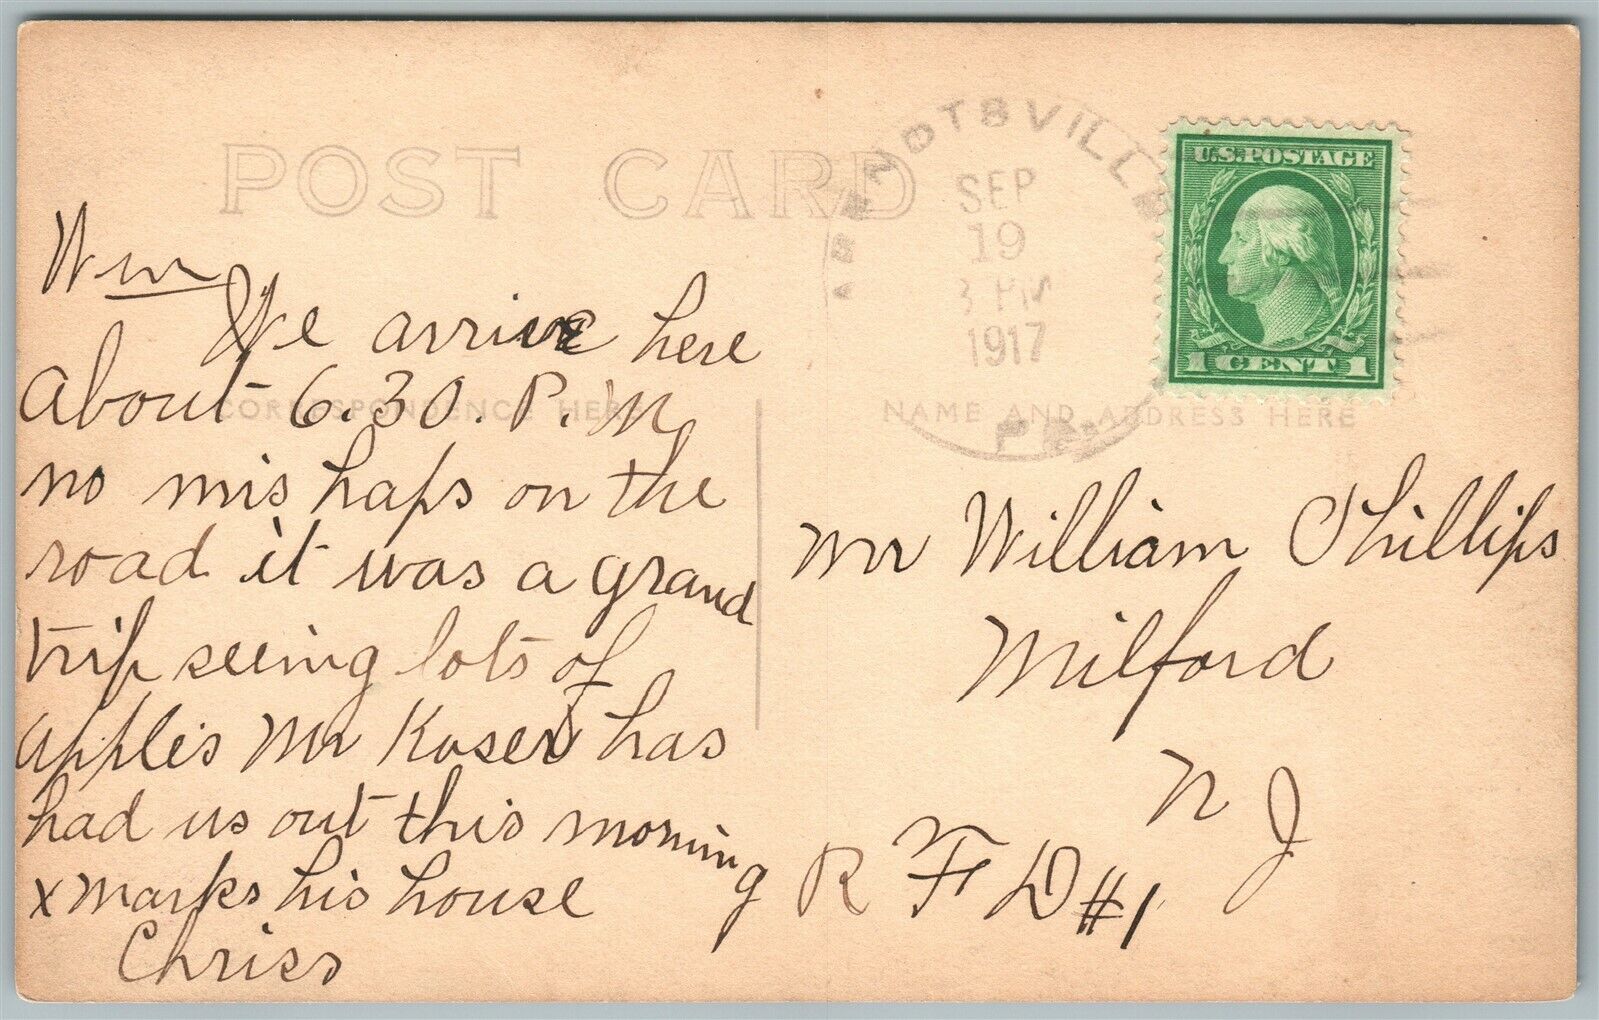 POST CARD
ARENDTSVILLE
SEP
19
3 PM
1917
PA.
U.S. POSTAGE
1 CENT 1
CORRESPONDENCE HERE
NAME AND ADDRESS HERE
Wm
We arrive here
about 6.30. P. M
no mis haps on the
road it was a grand
trip seeing lots of
apples Mr Koser has
had us out this morning
x marks his house
Chriss
Mr William Phillips
Milford
N J
R F D #1